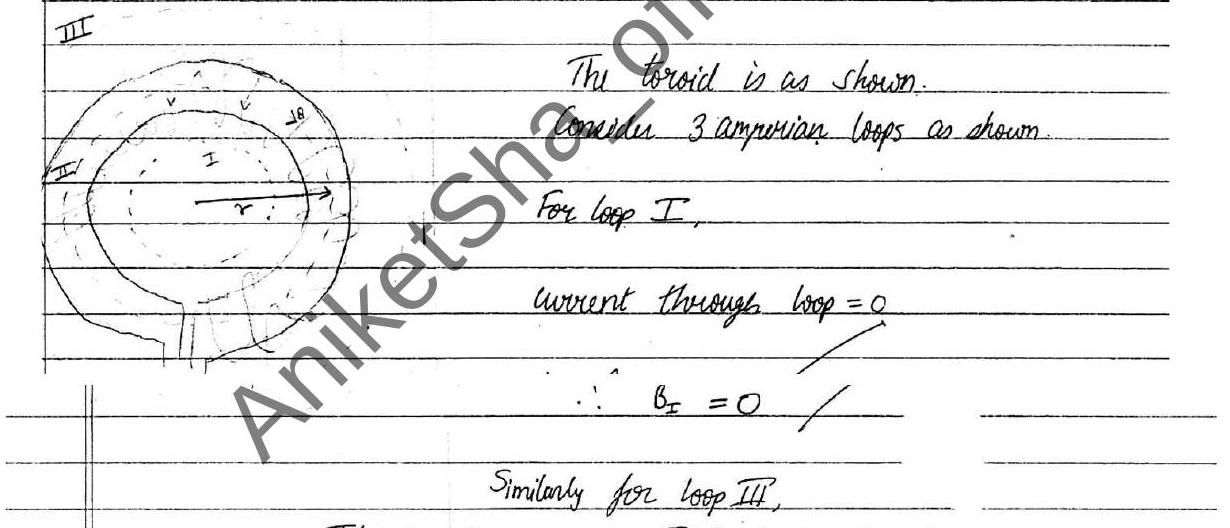 III
The toroid is as shown.
Consider 3 amperian loops as shown.
I
II
r
For loop I,
current through loop = 0
∴ B_I = 0
Similarly for loop III,
AniketSha_on